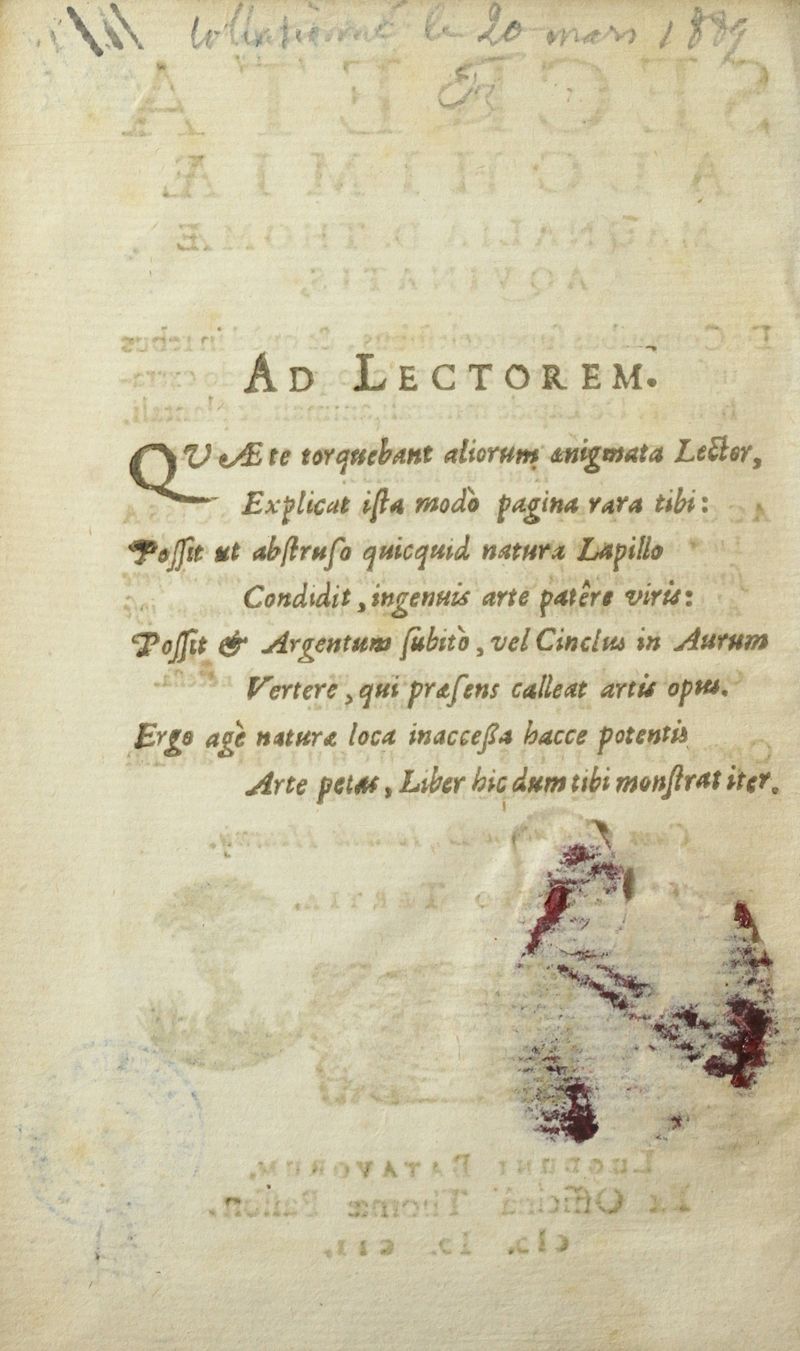 Collationné le 20 mars 1889
AD LECTOREM.
QVÆ te torquebant aliorum ænigmata Lector,
Explicat iſta modò pagina rara tibi:
Poſſit ut abſtruſo quicquid natura Lapillo
Condidit, ingenuis arte patêre viris:
Poſſit & Argentum ſubitò, vel Cinclus in Aurum
Vertere, qui præſens calleat artis opus.
Ergo agè naturæ loca inacceſſa hacce potentis
Arte petas, Liber hic dum tibi monſtrat iter.